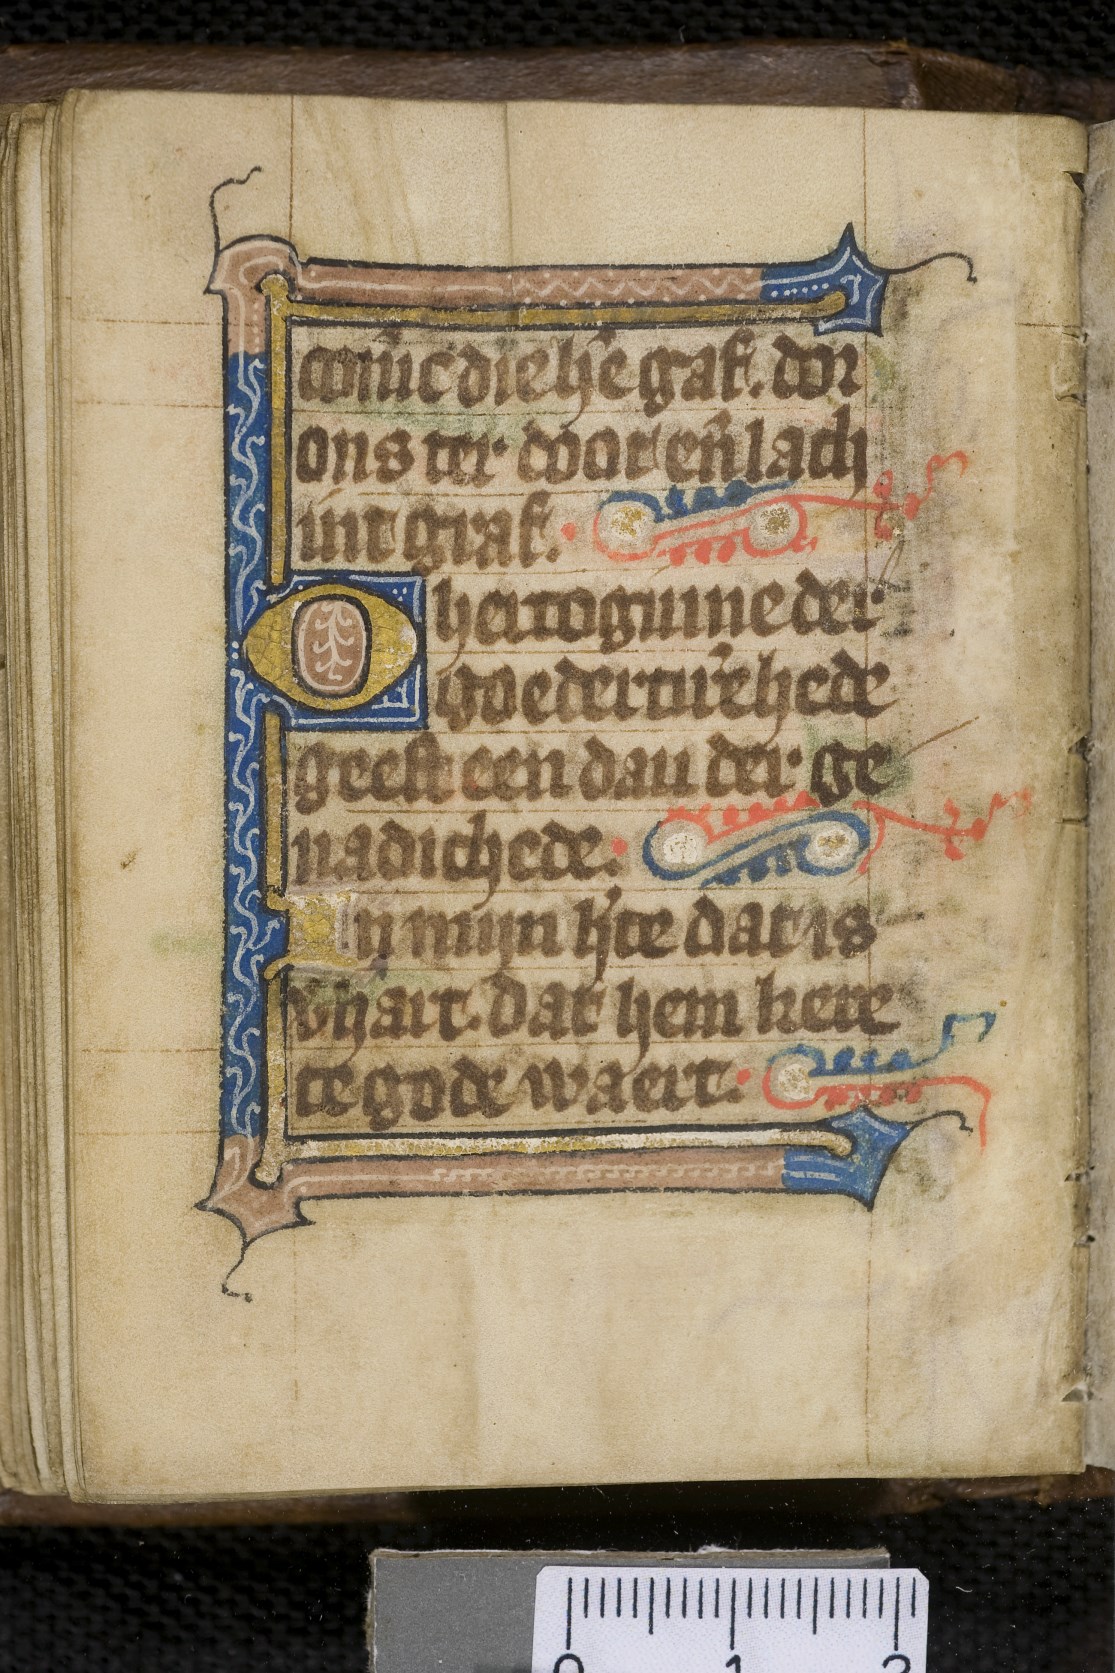 coni̅c die he̅ gaf. dor
ons ter doot en̅ lach
int graf.
O hertoginne der
goedertire̅hede
geeft een dau der ge
nadichede.
In mijn h'te dat is
v'hart. dat hem kere
te gode waert.
0 1 2